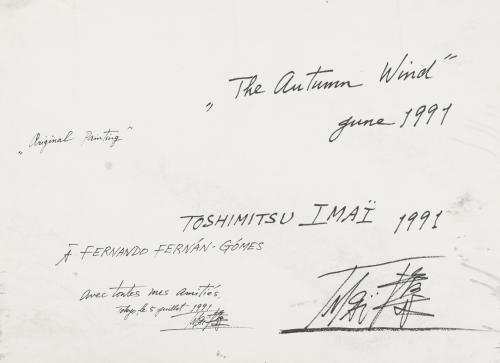 „The Autumn Wind"
june 1991
„Original Painting"
TOSHIMITSU IMAÏ 1991
À FERNANDO FERNÁN-GÓMES
Avec toutes mes amitiés,
Tokyo, le 5 juillet 1991
Imaï